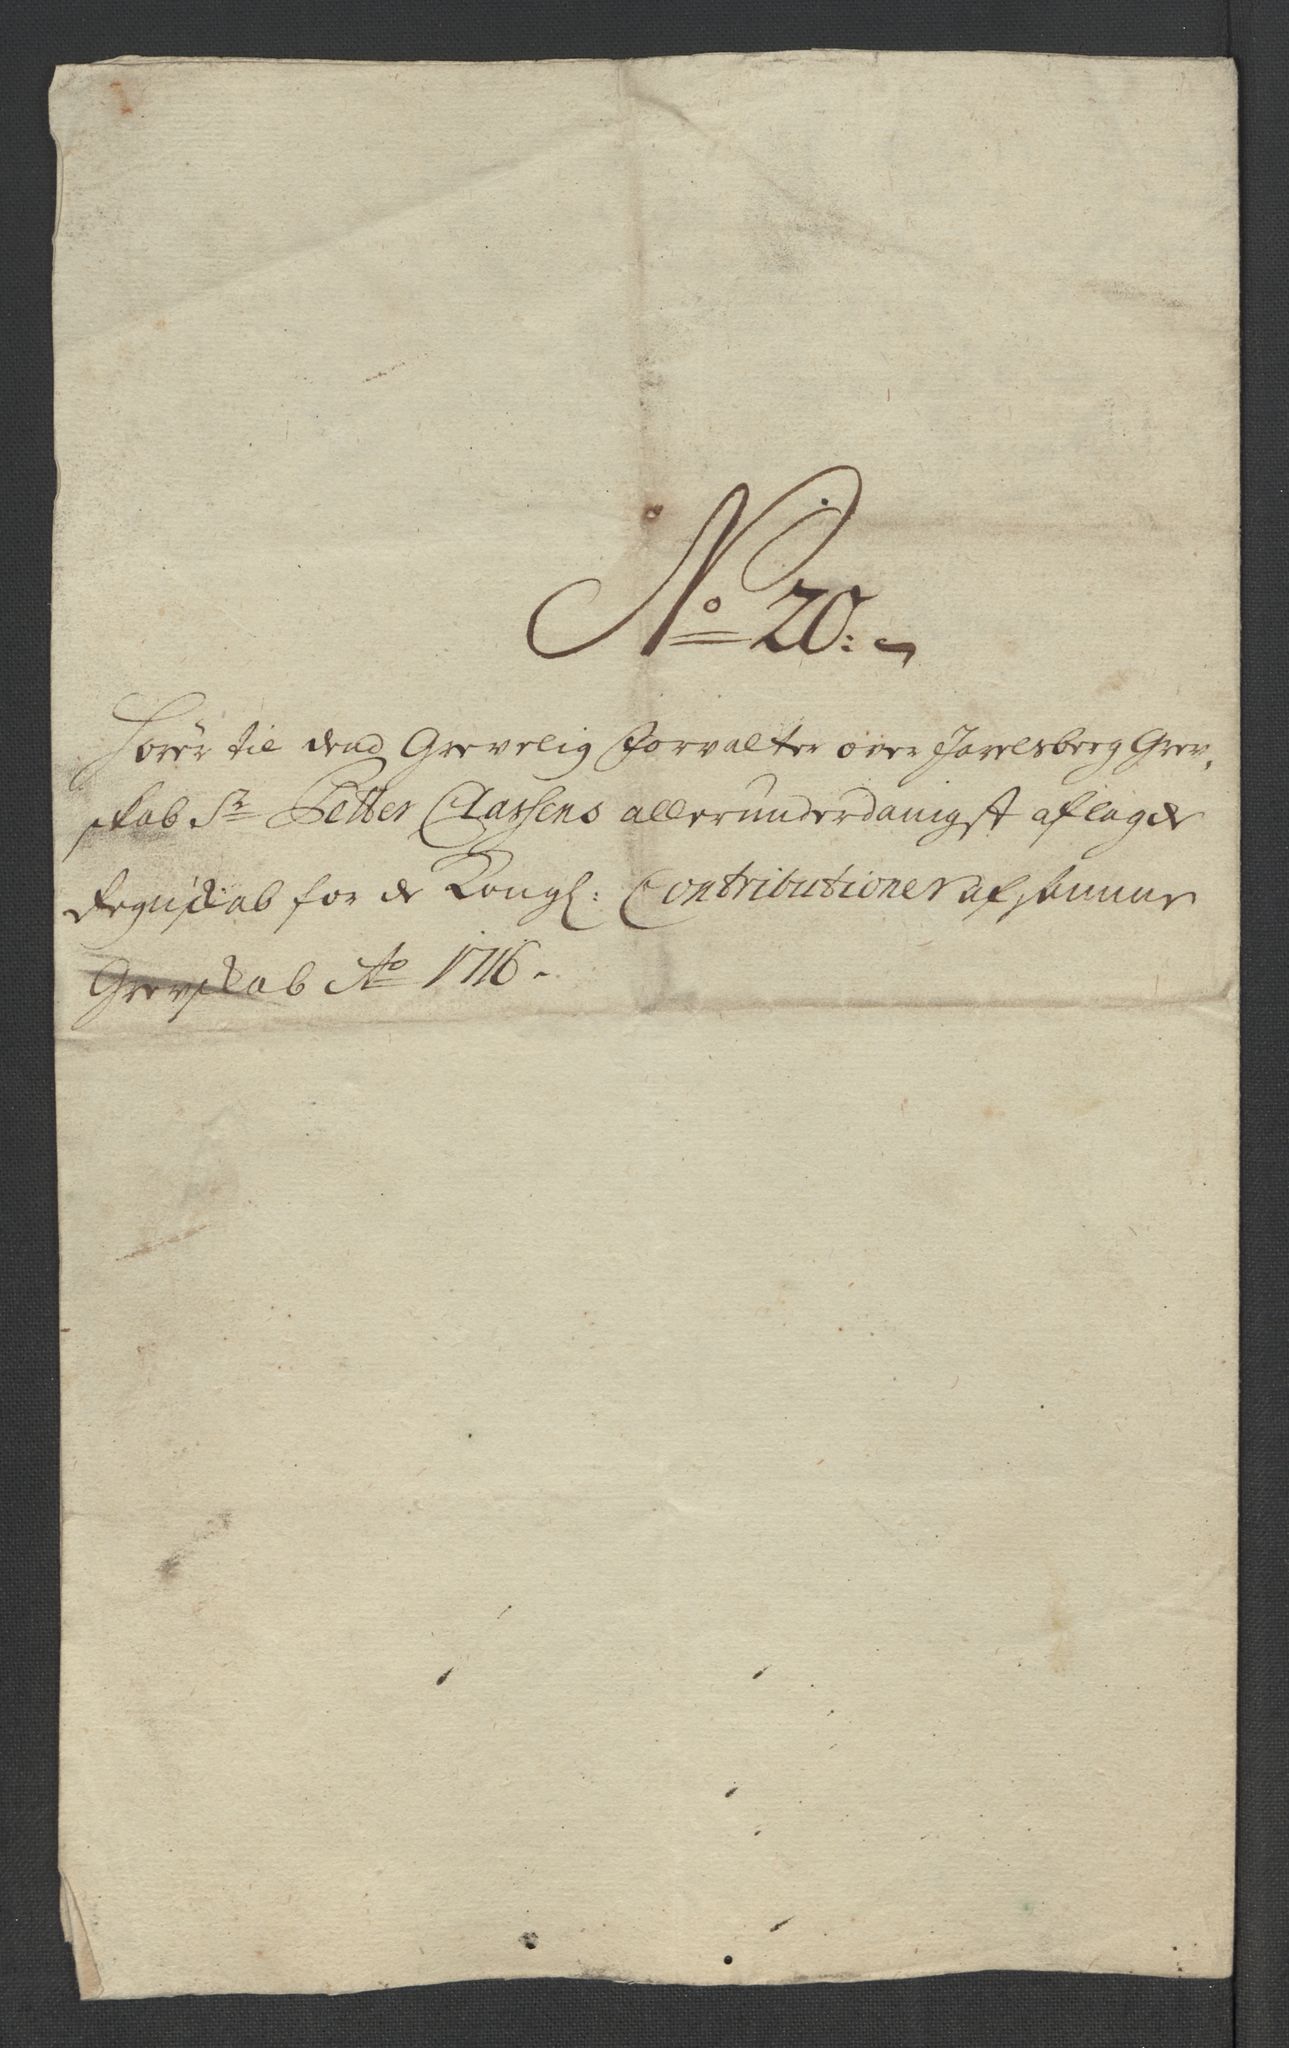 No 20:
Hører til dend Grevelig Forvalter over Jarelsberg Grev,
skab Sr Petter Classens allerunderdanigst aflagde
Regnskab for de Kongl: Contributioner af samme
Grevskab Ao 1716.